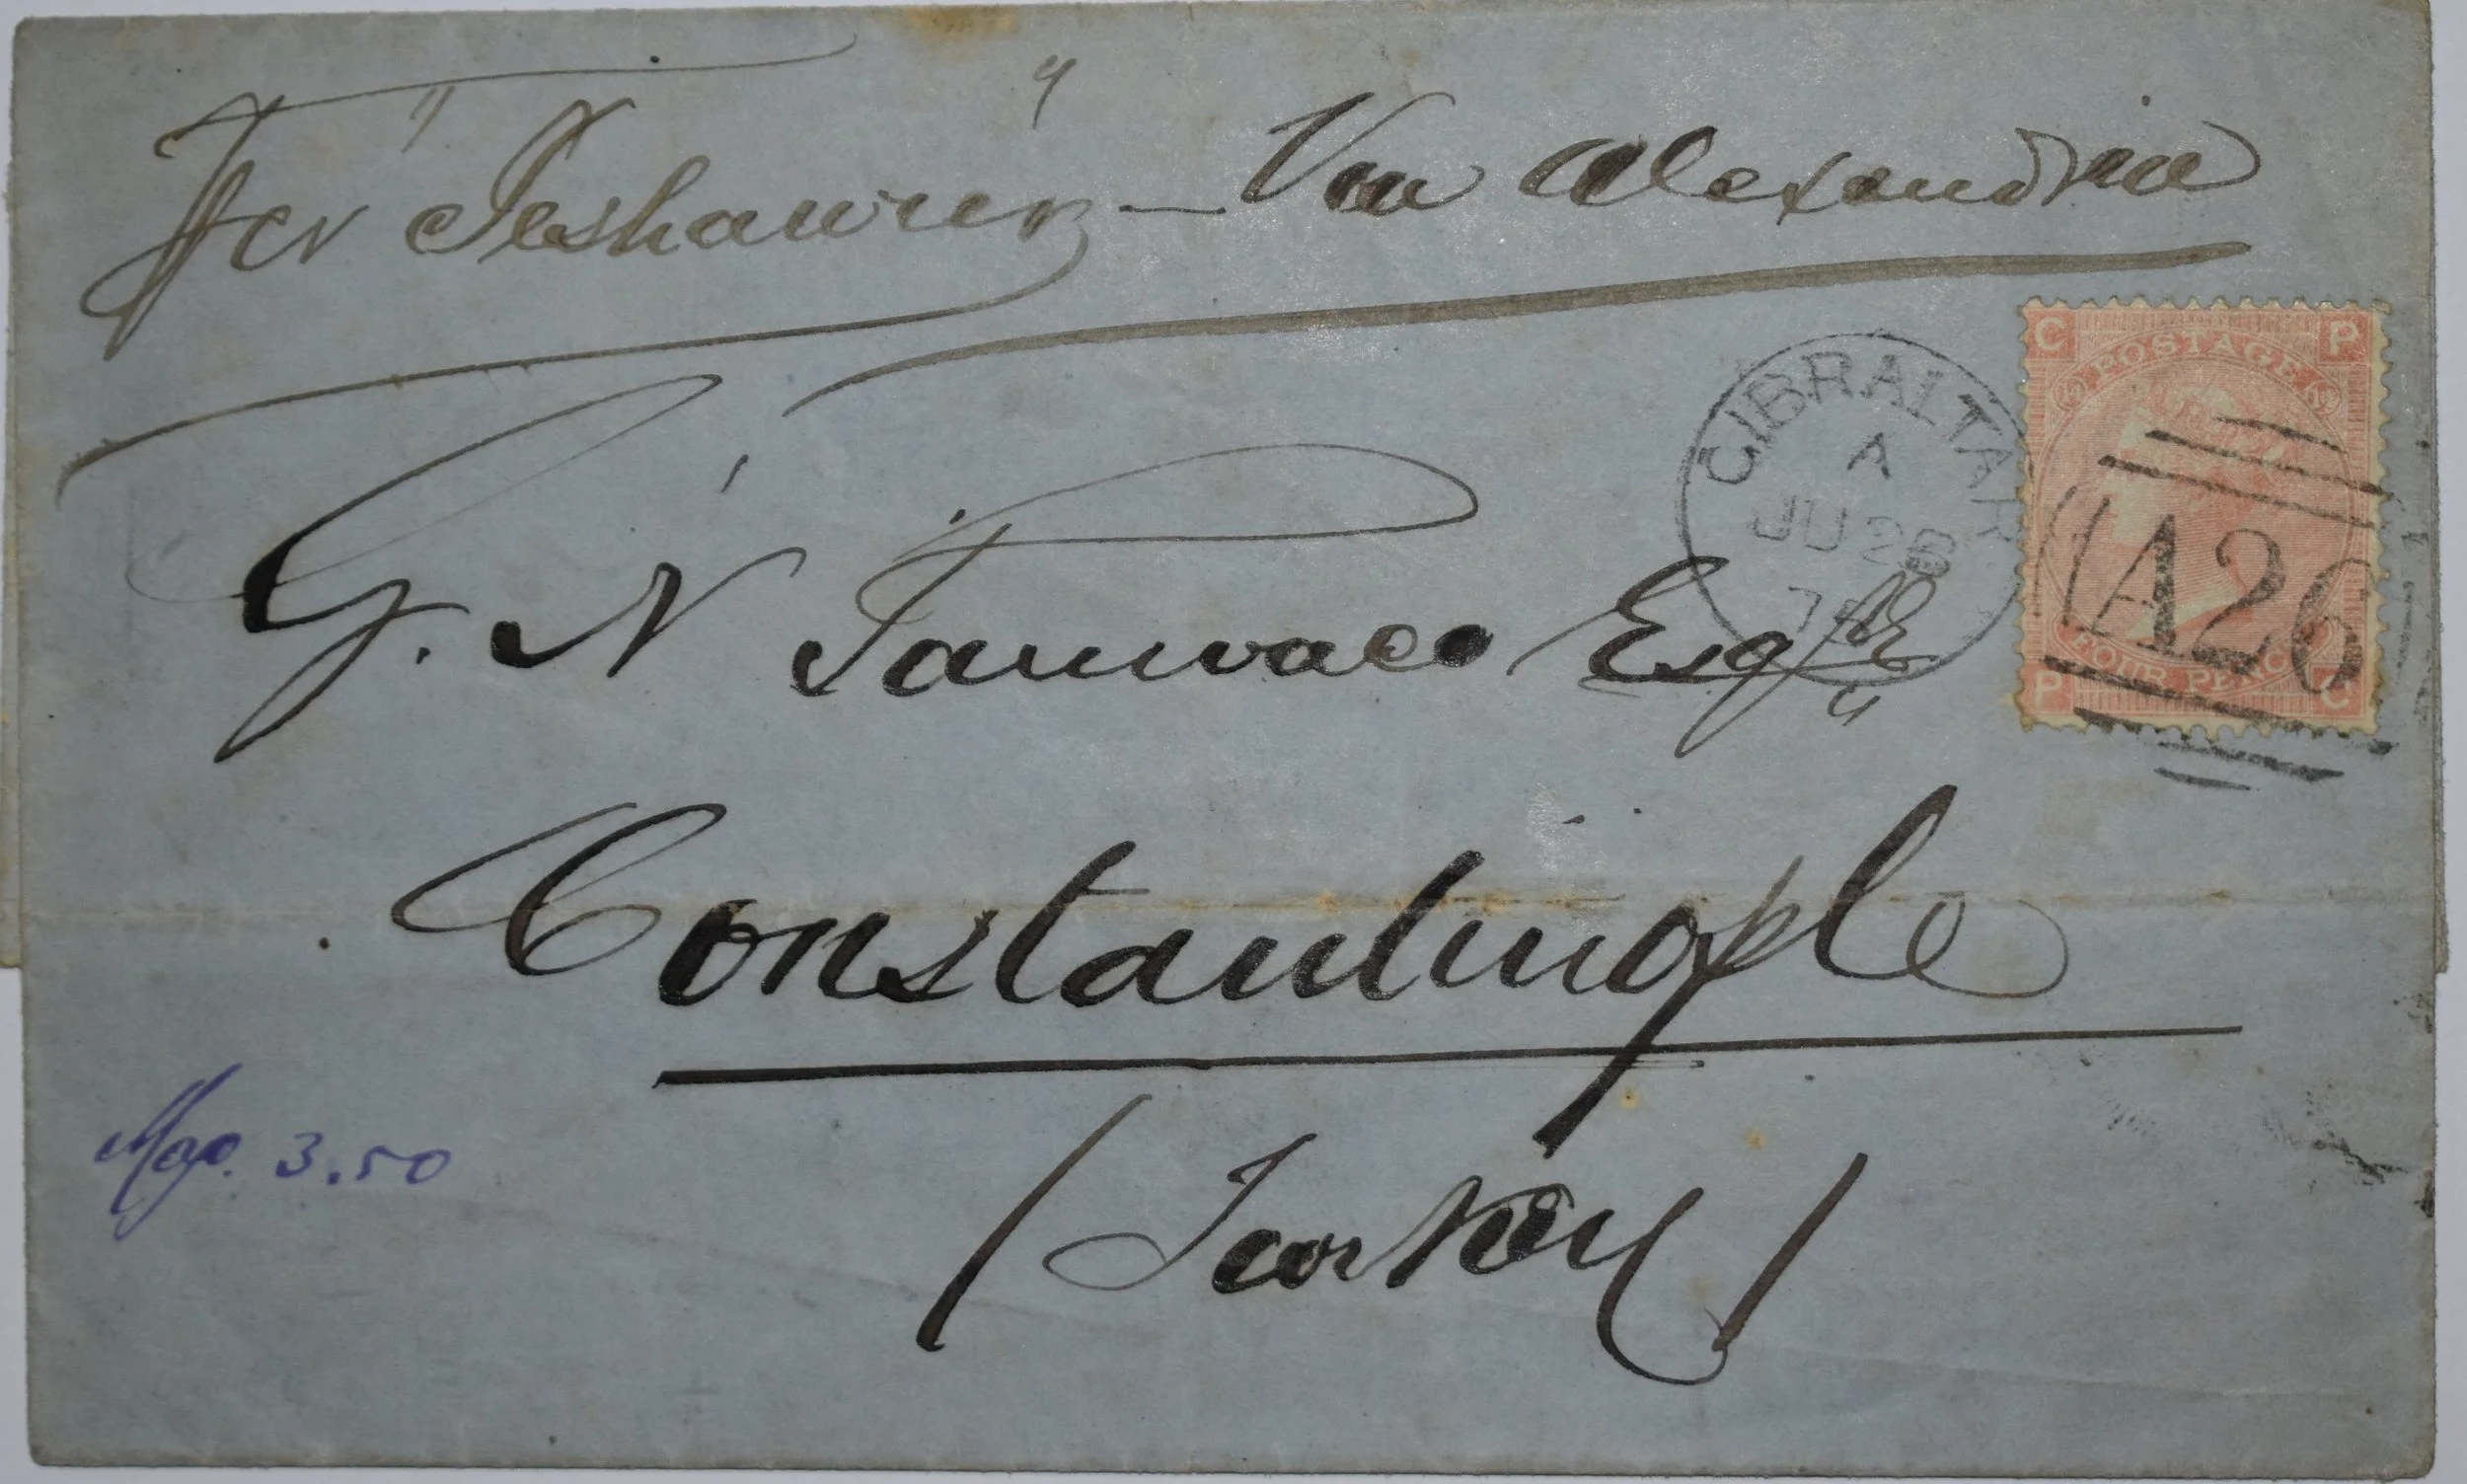 Per Peshawur – Via Alexandria
C P
POSTAGE
GIBRALTAR
A
JU 26
A26
FOUR PENCE
P C
G. N Tamvaco Esqre
Constantinople
(Turkey)
3.50